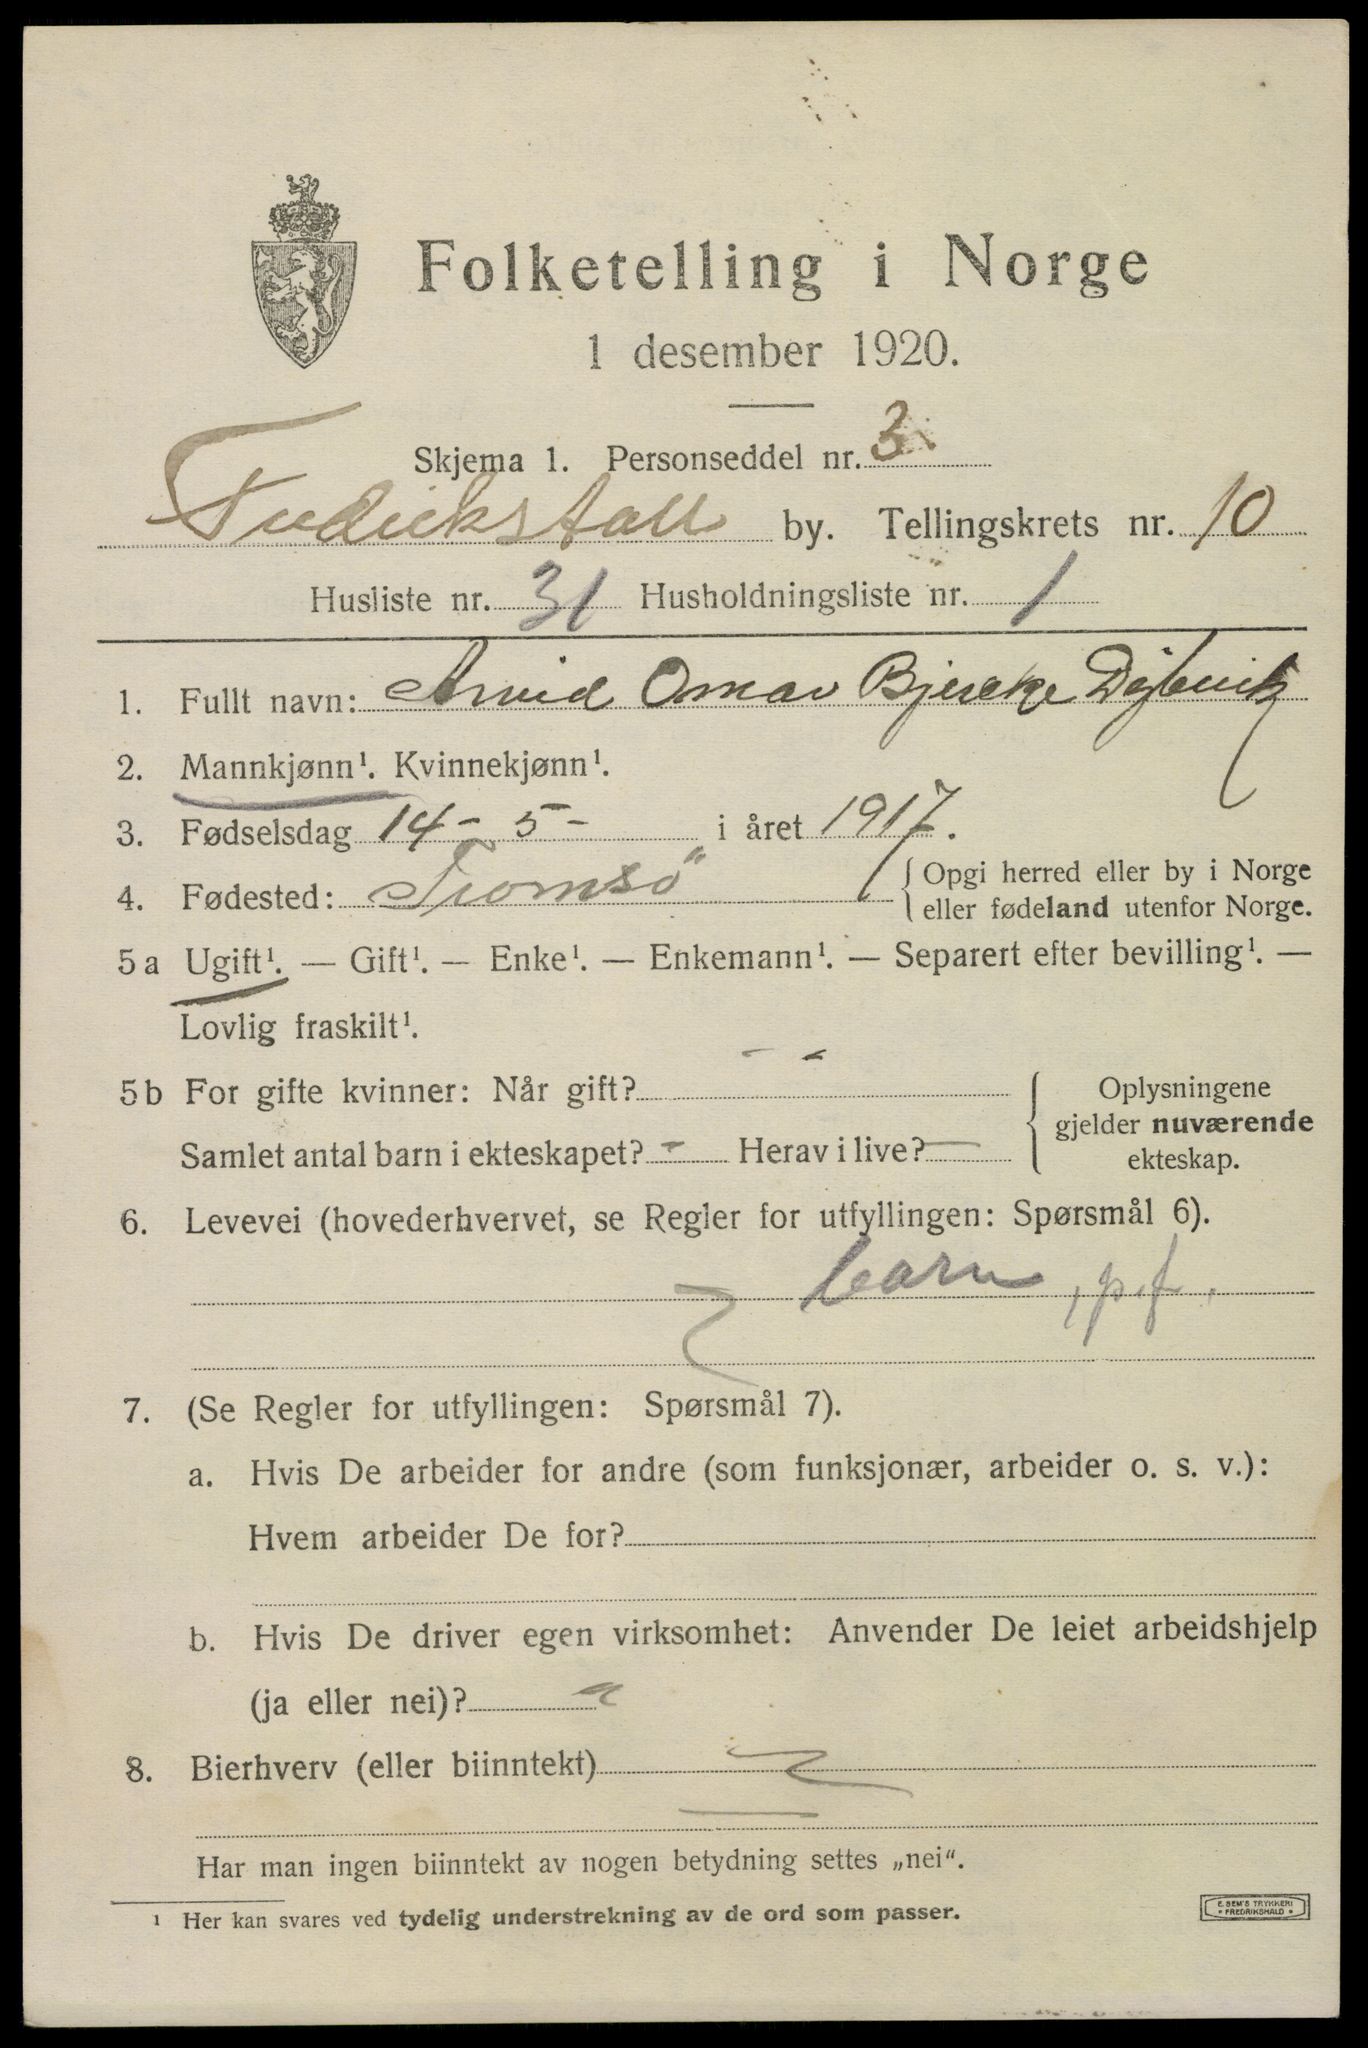 Folketelling i Norge
1 desember 1920.
Skjema 1. Personseddel nr. 3
Fredrikstad by. Tellingskrets nr. 10
Husliste nr. 31 Husholdningsliste nr. 1
1. Fullt navn: Arvid Omar Bjercke
2. Mannkjønn¹. Kvinnekjønn¹.
3. Fødselsdag 14 - 5 - i året 1917.
4. Fødested: Tromsö { Opgi herred eller by i Norge
eller fødeland utenfor Norge.
5a Ugift¹. — Gift¹. — Enke¹. — Enkemann¹. — Separert efter bevilling¹. —
Lovlig fraskilt¹.
5b For gifte kvinner: Når gift? - - { Oplysningene
gjelder nuværende
ekteskap.
Samlet antal barn i ekteskapet? - Herav i live? —
6. Levevei (hovederhvervet, se Regler for utfyllingen: Spørsmål 6).
barn, p.f.
7. (Se Regler for utfyllingen: Spørsmål 7).
a. Hvis De arbeider for andre (som funksjonær, arbeider o. s. v.):
Hvem arbeider De for?
b. Hvis De driver egen virksomhet: Anvender De leiet arbeidshjelp
(ja eller nei)? "
8. Bierhverv (eller biinntekt)
Har man ingen biinntekt av nogen betydning settes „nei“.
¹ Her kan svares ved tydelig understrekning av de ord som passer.
E. SEM'S TRYKKERI
* FREDRIKSHALD *